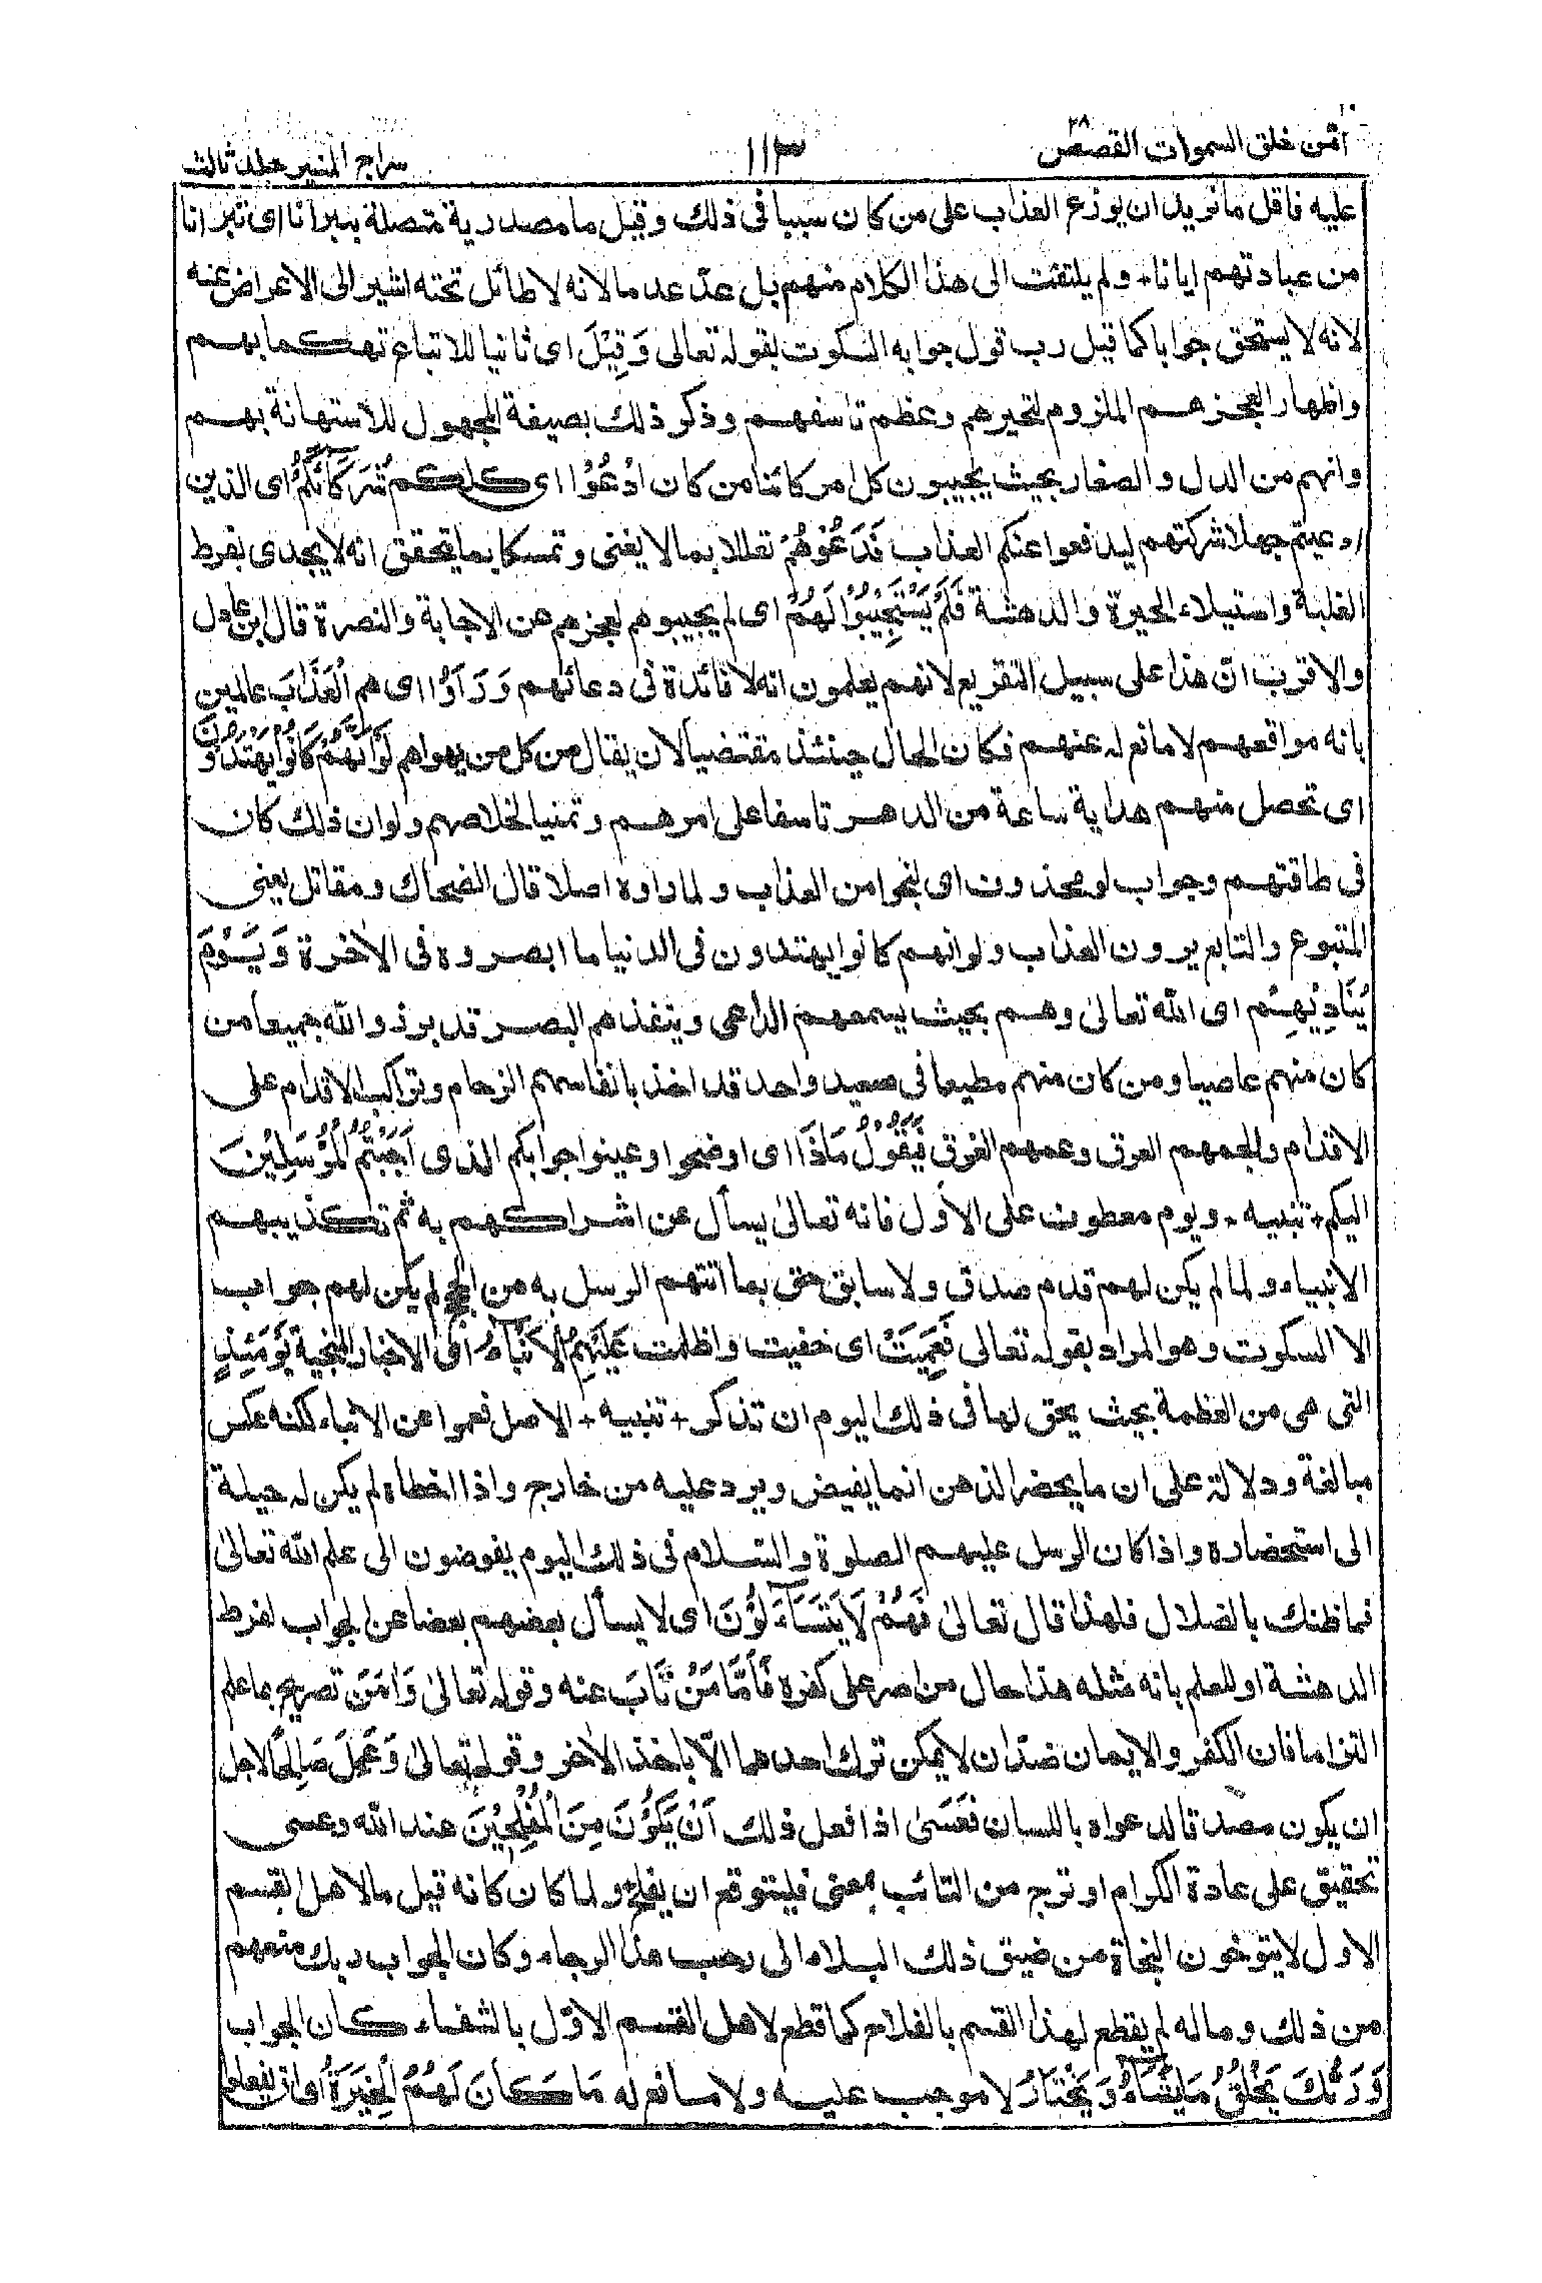 امّن خلق السموات القصص ٢٨
١١٣
سراج المنير جلد ثالث
عليه فاقل ما نريد ان يوزع العذاب على من كان سببا فى ذلك وقيل ما مصدرية متصلة بتبرأنا اى تبرأنا
من عبادتهم ايانا ولم يلتفت الى هذا الكلام منهم بل عدّ عدما لانه لا طائل تحته اشير الى الاعراض عنه
لانه لا يستحق جوابا كما قيل رب قول جوابه السكوت بقوله تعالى وَقِيْلَ اى ثانيا للاتباع تهكما بهم
واظهار العجزهم الملزوم لتحيرهم وعظم تاسفهم وذكر ذلك بصيغة المجهول للاستهانة بهم
وانهم من الذل والصغار بحيث يجيبون كل امر كائنا من كان ادْعُوْا اى كلكم شُرَكَآئَكُمْ اى الذين
ادعيتم جهلا شركتهم ليدفعوا عنكم العذاب فَدَعَوْهُمْ تعللا بما لا يغنى وتمسكا بما يتحقق انه لا يجدى بفرط
الغلبة واستيلاء الحيرة والدهشة فَلَمْ يَسْتَجِيْبُوْا لَهُمْ اى لم يجيبوهم لعجزهم عن الاجابة والنصرة قال ابن عادل
والاقرب انّ هذا على سبيل التقريع لانهم يعلمون انه لا فائدة فى دعائهم وَرَاَوُا اى هم الْعَذَابَ عالمين
بانه مواقعهم لا مانع له عنهم فكان الحال حينئذ مقتضيا لان يقال من كل من يهواهم لَوْ اَنَّهُمْ كَانُوْا يَهْتَدُوْنَ
اى تحصل منهم هداية ساعة من الدهر تاسفا على امرهم وتمنيا لخلاصهم ولو ان ذلك كان
فى طاقتهم وجواب لو محذوف اى لنجوا من العذاب ولما راوه اصلا قال الضحاك ومقاتل يعنى
المتبوع والتابع يرون العذاب ولو انهم كانوا يهتدون فى الدنيا ما ابصروه فى الاخرة وَيَوْمَ
يُنَادِيْهِمْ اى الله تعالى وهم بحيث يسمعهم الداعى وينفذهم البصر قد برزوا لله جميعا من
كان منهم عاصيا ومن كان منهم مطيعا فى صعيد واحد قد اخذ بانفاسهم الزحام وتراكب الاقدام على
الاقدام والجمهم العرق وعمهم الغرق فَيَقُوْلُ مَاذَا اى اوضحوا وعينوا جوابكم الذى اَجَبْتُمُ الْمُرْسَلِيْنَ
اليكم + تنبيه - ويوم معطوف على الاول فانه تعالى يسأل عن اشراكهم به ثم تكذيبهم
الانبياء ولما لم يكن لهم قدم صدق ولا سابق حق بما اتتهم الرسل به من الحجج لم يكن لهم جواب
الا السكوت وهو المراد بقوله تعالى فَعَمِيَتْ اى خفيت واظلمت عَلَيْهِمُ الْاَنْبَآءُ اى الاخبار المنجية يَوْمَئِذٍ
التى هى من العظمة بحيث يحق لها فى ذلك اليوم ان تذكر + تنبيه + الاصل فعموا عن الانباء لكنه عكس
مبالغة ودلالة على ان ما يحضر الذهن انما يفيض ويرد عليه من خارج واذا اخطأه لم يكن له حيلة
الى استحضاره واذا كان الرسل عليهم الصلوة والسلام فى ذلك اليوم يفوضون الى علم الله تعالى
فما ظنك بالضلال فلهذا قال تعالى فَهُمْ لَا يَتَسَآءَلُوْنَ اى لا يسأل بعضهم بعضا عن الجواب لفرط
الدهشة او للعلم بانه مثله هذا حال من اصر على كفره فَاَمَّا مَنْ تَابَ عنه وقوله تعالى وَاٰمَنَ تصريح بما علم
التزاما فان الكفر والايمان ضدّان لا يمكن ترك احدهما الّا باخذ الآخر وقوله تعالى وَعَمِلَ صَالِحًا لاجل
ان يكون مصدقا لدعواه باللسان فَعَسٰى اذا فعل ذلك اَنْ يَّكُوْنَ مِنَ الْمُفْلِحِيْنَ عند الله وعسى
تحقيق على عادة الكرام او ترج من التائب بمعنى فليتوقع ان يفلح + ولما كان كانه قيل ما لاهل القسم
الاول لا يتوخون النجاة من ضيق ذلك البلاء الى رحب هذا الرجاء وكان الجواب ربك منعهم
من ذلك وما له لم يقطع لهذا القسم بالفلاح كما قطع لاهل القسم الاوّل بالشفاء كان الجواب
وَرَبُّكَ يَخْلُقُ مَا يَشَآءُ وَيَخْتَارُ لا موجب عليه ولا مانع له مَا كَانَ لَهُمُ الْخِيَرَةُ اى ان يفعلوا